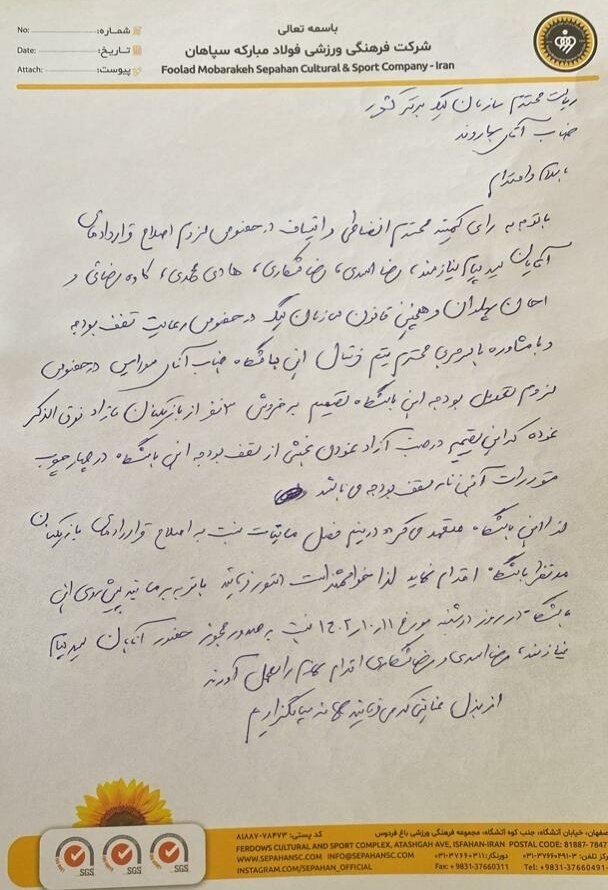 باسمه تعالی
شرکت فرهنگی ورزشی فولاد مبارکه سپاهان
Foolad Mobarakeh Sepahan Cultural & Sport Company - Iran
No: شماره:
Date: تاریخ:
Attach: پیوست:
ریاست محترم سازمان لیگ برتر کشور
جناب آقای سهاروند
با سلام و احترام
با توجه به رای کمیته محترم انضباطی و انصاف در خصوص لزوم اصلاح قراردادهای
آقایان سید پیام نیازمند، رضا اسدی، رضا شکاری، هادی محمدی، کاوه رضائی و
احسان پهلوان و همچنین قانون سازمان لیگ در خصوص رعایت سقف بودجه
و با مشاوره با سرمربی محترم تیم فوتبال این باشگاه جناب آقای مورایس در خصوص
لزوم تعدیل بودجه این باشگاه تصمیم به فروش ۳ نفر از بازیکنان مازاد فوق الذکر
نموده که این تصمیم در جهت آزاد نمودن بخشی از سقف بودجه این باشگاه در چهارچوب
مقررات آئین نامه سقف بودجه می باشد
لذا این باشگاه متعهد می گردد در نیم فصل مابقی نسبت به اصلاح قراردادهای بازیکنان
مد نظر باشگاه اقدام نماید لذا خواهشمند است دستور فرمائید با توجه به برنامه پیش روی این
باشگاه در روز دوشنبه مورخ ۱۴۰۲/۱۰/۱۱ نسبت به صدور مجوز حضور آقایان سید پیام
نیازمند، رضا اسدی و رضا شکاری اقدام لازم را بعمل آورند
از بذل عنایتی که می فرمائید سپاسگزاریم
SGS SGS SGS
اصفهان، خیابان آتشگاه، جنب کوه آتشگاه، مجموعه فرهنگی ورزشی باغ فردوس کد پستی: ۷۸۴۷۳-۸۱۸۸۷
FERDOWS CULTURAL AND SPORT COMPLEX, ATASHGAH AVE, ISFAHAN-IRAN POSTAL CODE: 81887-7847
WWW.SEPAHANSC.COM INFO@SEPAHANSC.COM دورنگار: ۰۳۱-۳۷۶۶۰۳۱۱ مرکز تلفن: ۳-۰۳۱-۳۷۶۶۰۴۹۱
INSTAGRAM.COM/SEPAHAN_OFFICIAL Fax: +9831-37660311 Tel: +9831-37660491